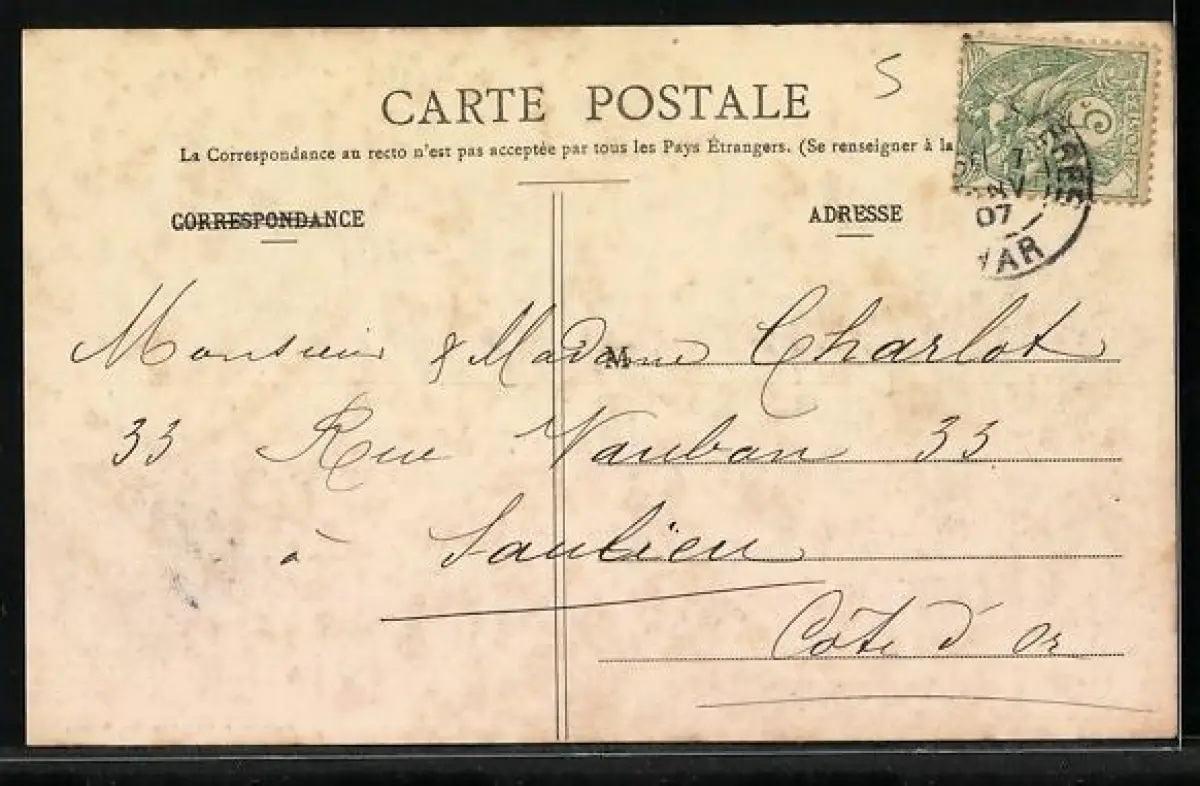 5
CARTE POSTALE
La Correspondance au recto n'est pas acceptée par tous les Pays Étrangers. (Se renseigner à la
CORRESPONDANCE
ADRESSE
7
07
VAR
Monsieur & Madame Charlot
M
33 Rue Vauban 33
à Saulieu
Côte d'Or